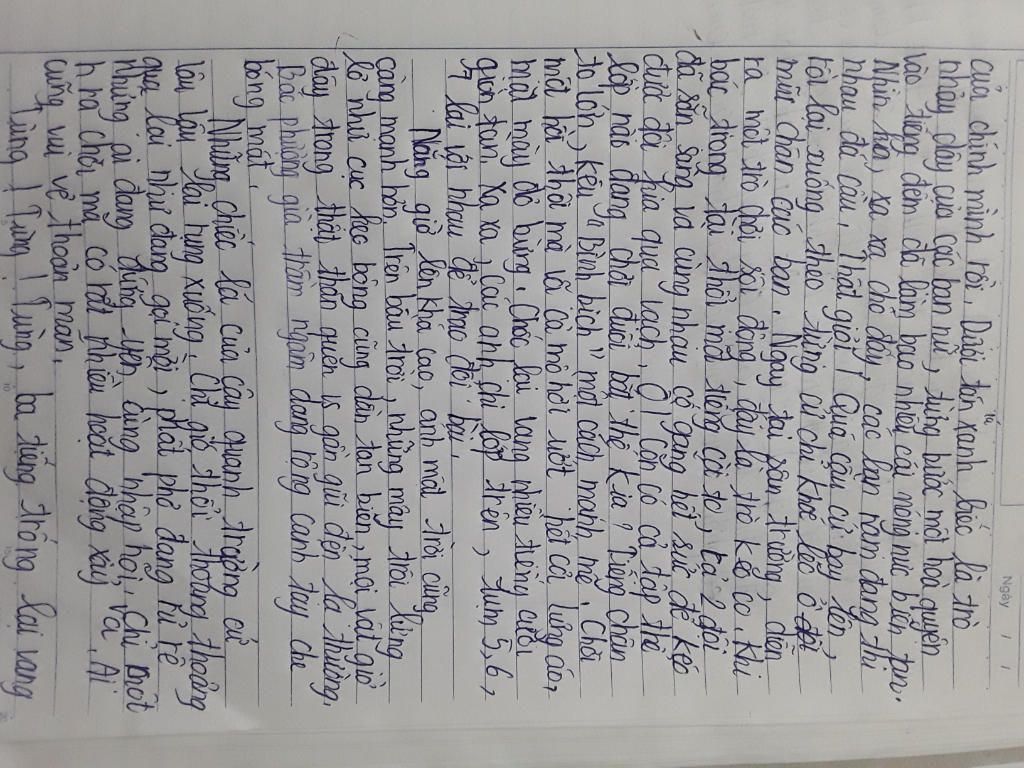 Ngày / /
của chính mình rồi. Dưới tán xanh biếc là trò
nhảy dây của các bạn nữ, từng bước một hoà quyện
vào tiếng đếm đã làm bao nhiêu cái nóng nực biến tan.
Nhìn kìa, xa xa chỗ đấy, các bạn nam đang thi
nhau đá cầu. Thật giỏi! Quả cầu cứ bay lên,
rồi lại xuống theo từng cử chỉ khéo léo ở
mũi chân các bạn. Ngay tại sân trường, diễn
ra một trò chơi sôi động, đấy là trò kéo co. Khi
bác trọng tài thổi một tiếng còi to, cả 2 đội
đã sẵn sàng và cùng nhau cố gắng hết sức để kéo
được đội kia qua vạch. Ô! Còn có cả tập thể
lớp nào đang chơi đuổi bắt thế kia? Tiếng chân
to lớn, kêu "Bình bịch" một cách mạnh mẽ. Chơi
một hồi thôi mà vã cả mồ hôi ướt hết cả lưng áo,
mặt mày đỏ bừng. Chốc lại vang nhiều tiếng cười
giòn tan. Xa xa, các anh chị lớp trên, tụm 5, 6,
7 lại với nhau để trao đổi bài.
Nắng giờ lên khá cao, ánh mặt trời cũng
càng mạnh hơn. Trên bầu trời, những mây trôi lửng
lơ như cục kẹo bông cũng dần tan biến, mọi vật giờ
đây trong thật thân quen và gần gũi đến lạ thường.
Bác phượng già thầm ngâm dang rộng cánh tay che
bóng mát.
Những chiếc lá của cây quanh trường cứ
lâu lâu lại rụng xuống. Chị gió thổi thoang thoảng
qua lại như đang gọi mời, phất phơ đang rủ rê
những ai đang đứng yên cùng nhập hội. Chỉ một
h ra chơi mà có rất nhiều hoạt động xảy ra. Ai
cũng vui vẻ thoả mãn.
Tùng! Tùng! Tùng, ba tiếng trống lại vang